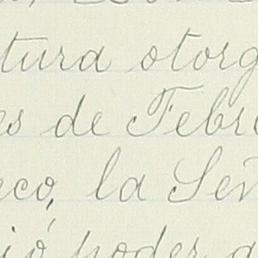 tura otorg
es de Febre
eco, la Señ
ió poder a